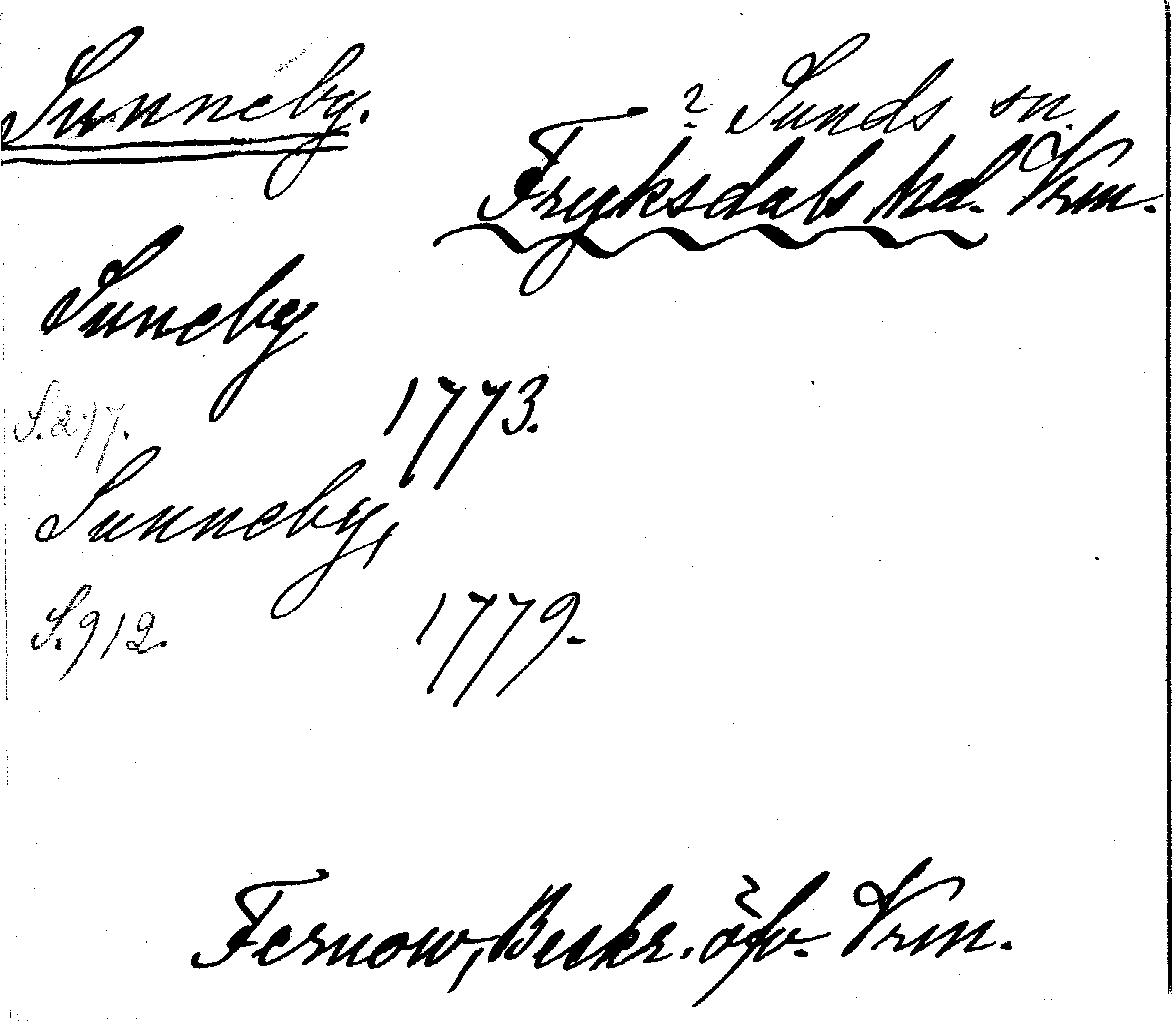 Sunneby.
? Sunds sn.
Fryksdals hd. Vrm.
Suneby
S. 277. 1773.
Sunneby,
S. 912. 1779.
Fernow, Beskr. öfv. Vrm.